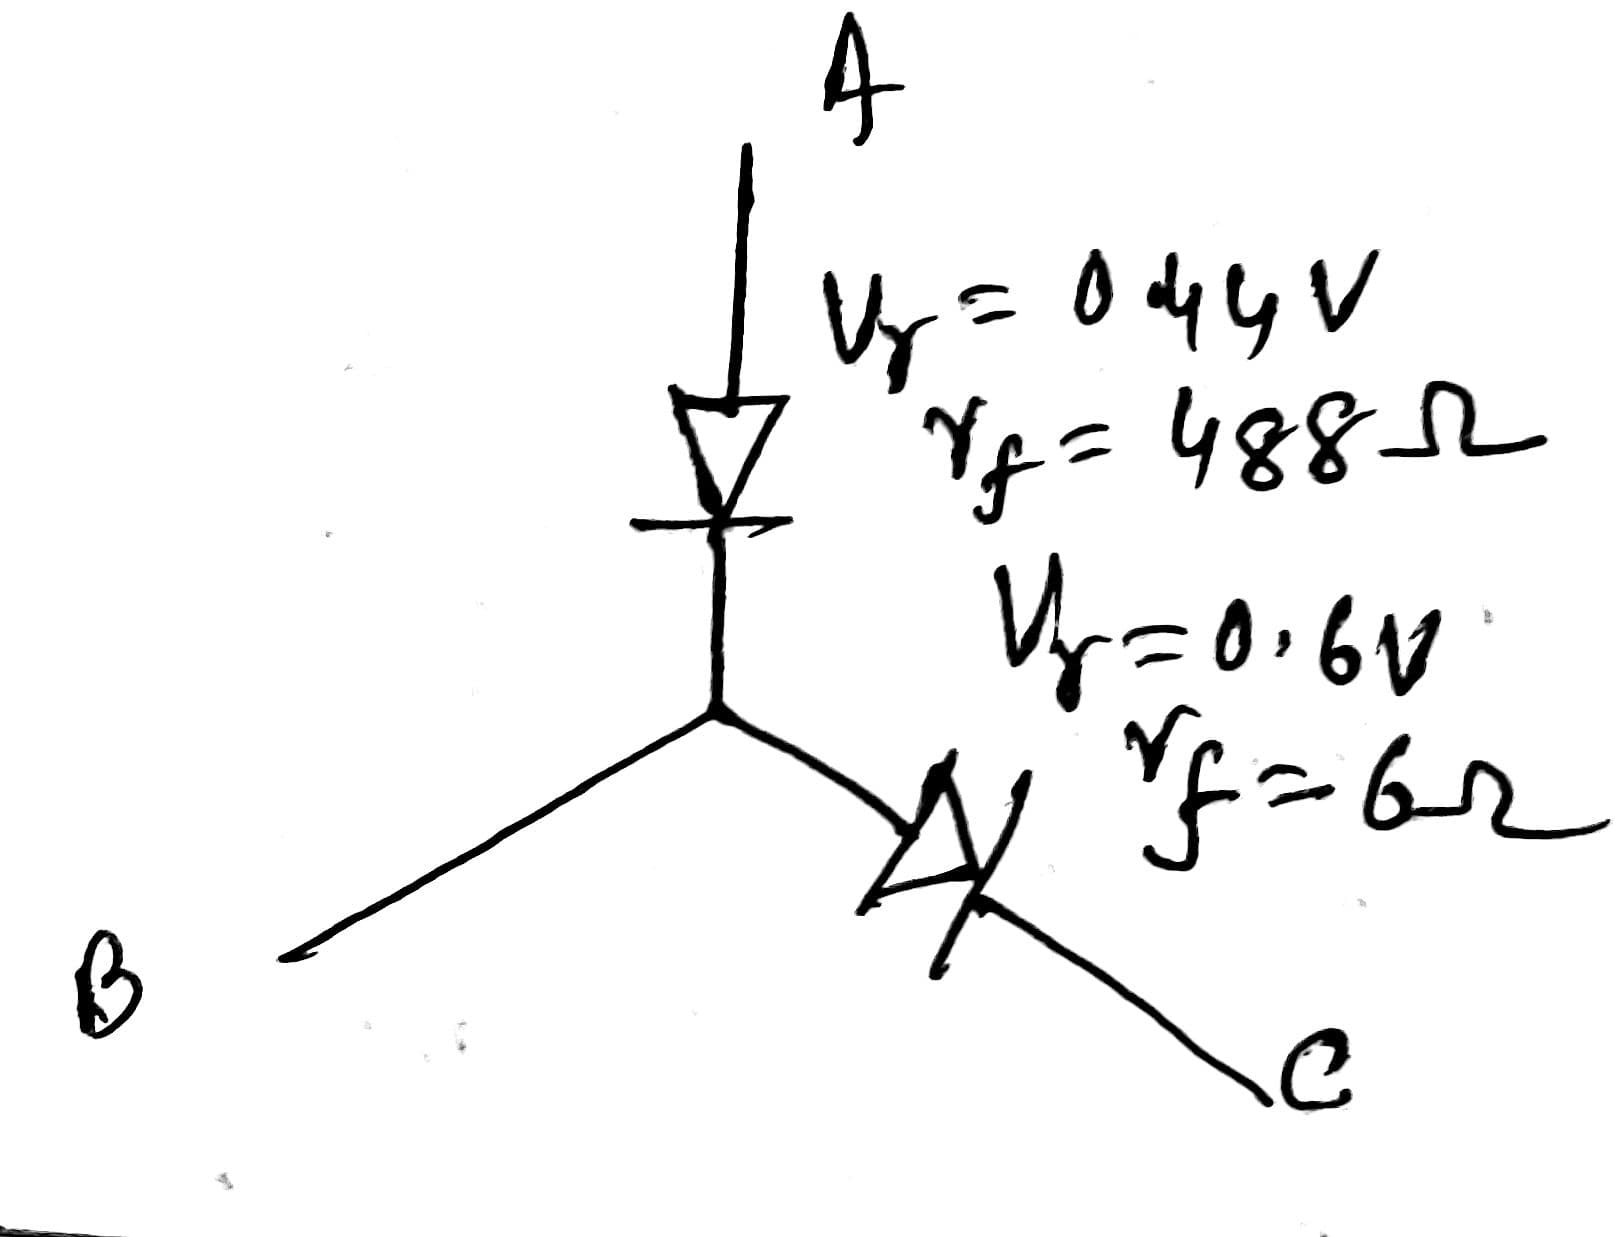 A
Vγ = 0.44V
rf = 488Ω
Vγ = 0.6V
rf = 6Ω
B
C